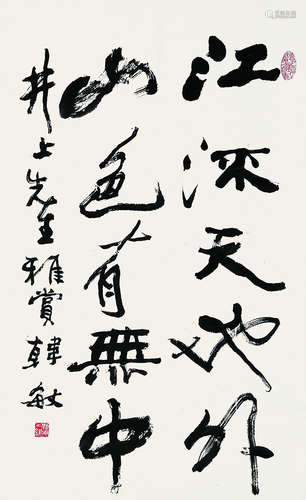 江流天地外
山色有無中
井上先生雅賞 韓敏